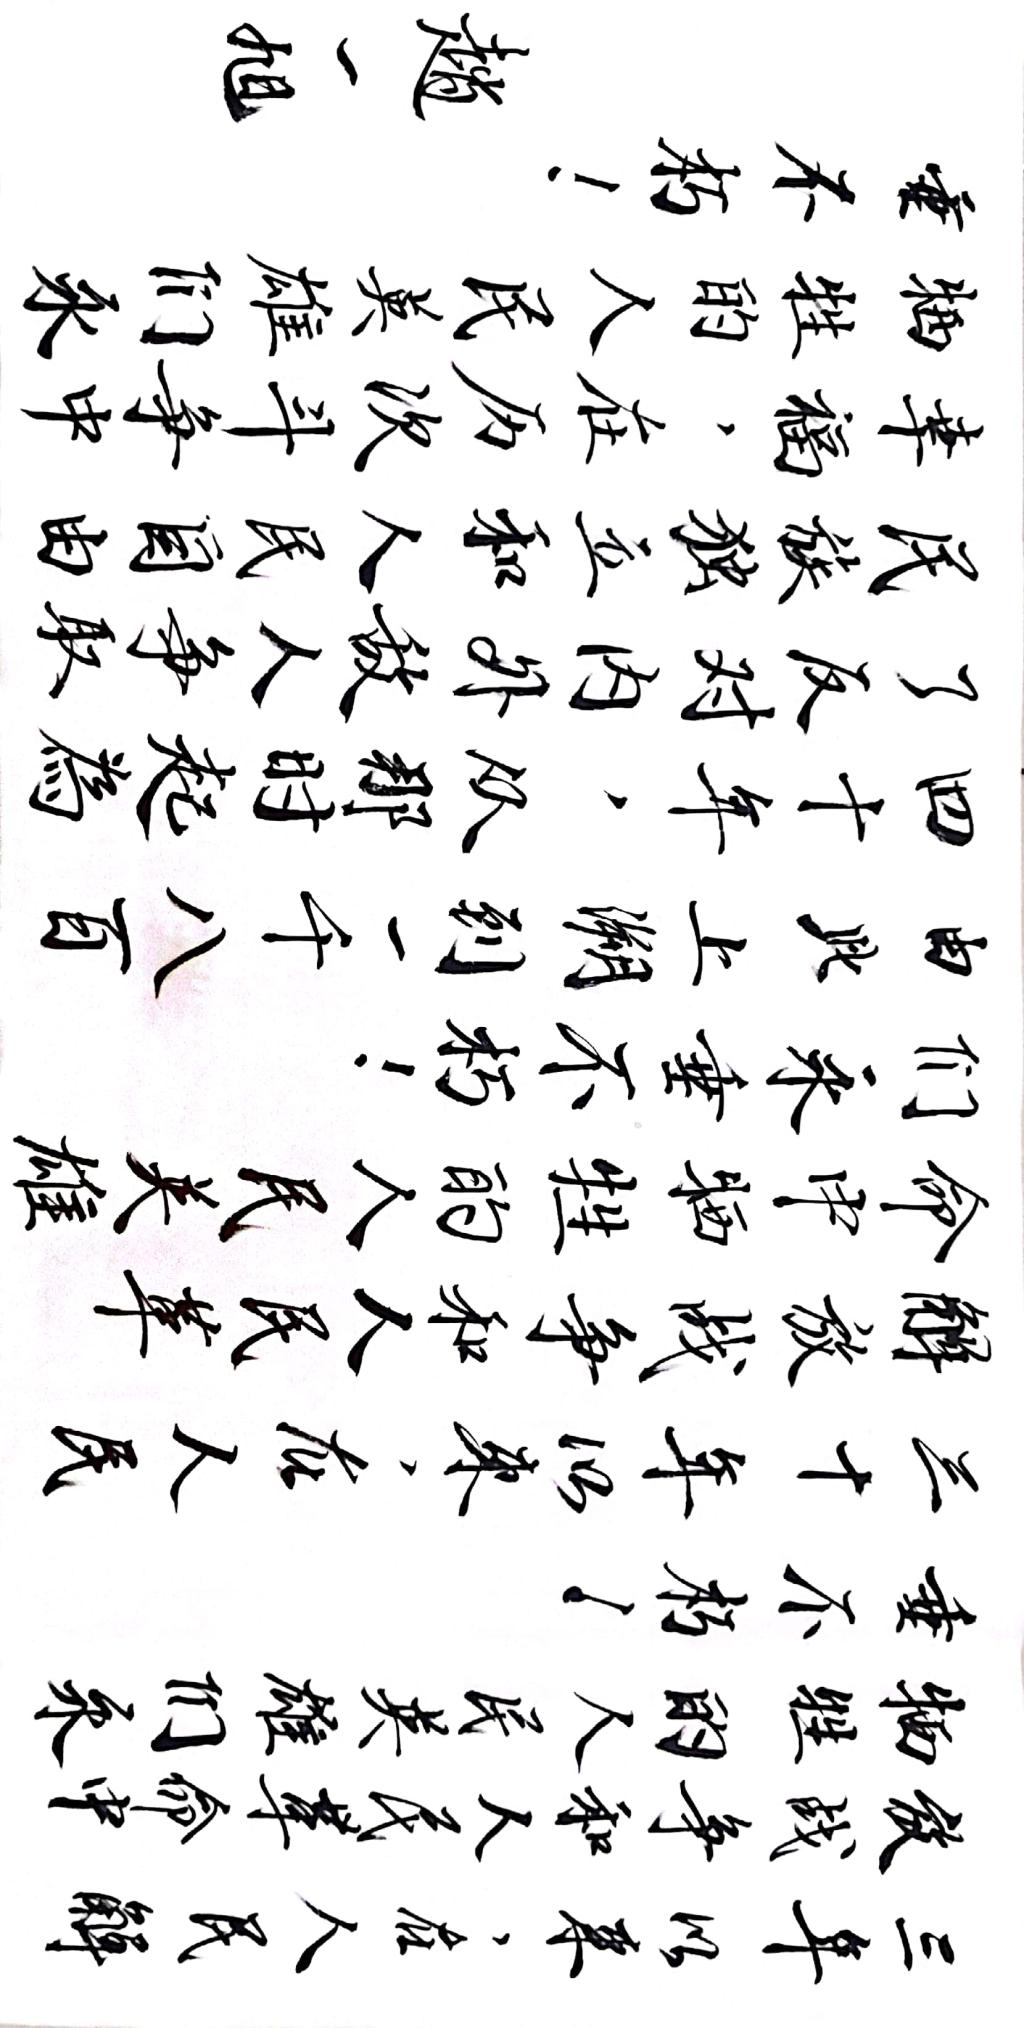 三年以来，在人民解
放战争和人民革命中
牺牲的人民英雄们永
垂不朽！
三十年以来，在人民
解放战争和人民革
命中牺牲的人民英雄
们永垂不朽！
由此上溯到一千八百
四十年，从那时起為
了反对内外敌人争取
民族独立和人民自由
幸福，在历次斗争中
牺牲的人民英雄们永
垂不朽！
趙一旭